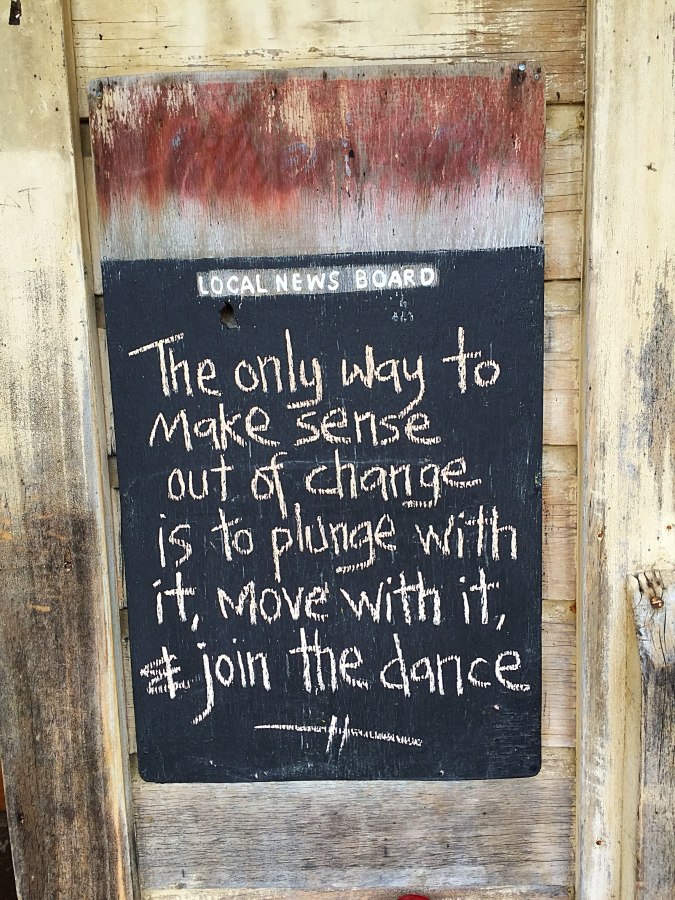 LOCAL NEWS BOARD
The only way to
make sense
out of change
is to plunge with
it, move with it,
& join the dance